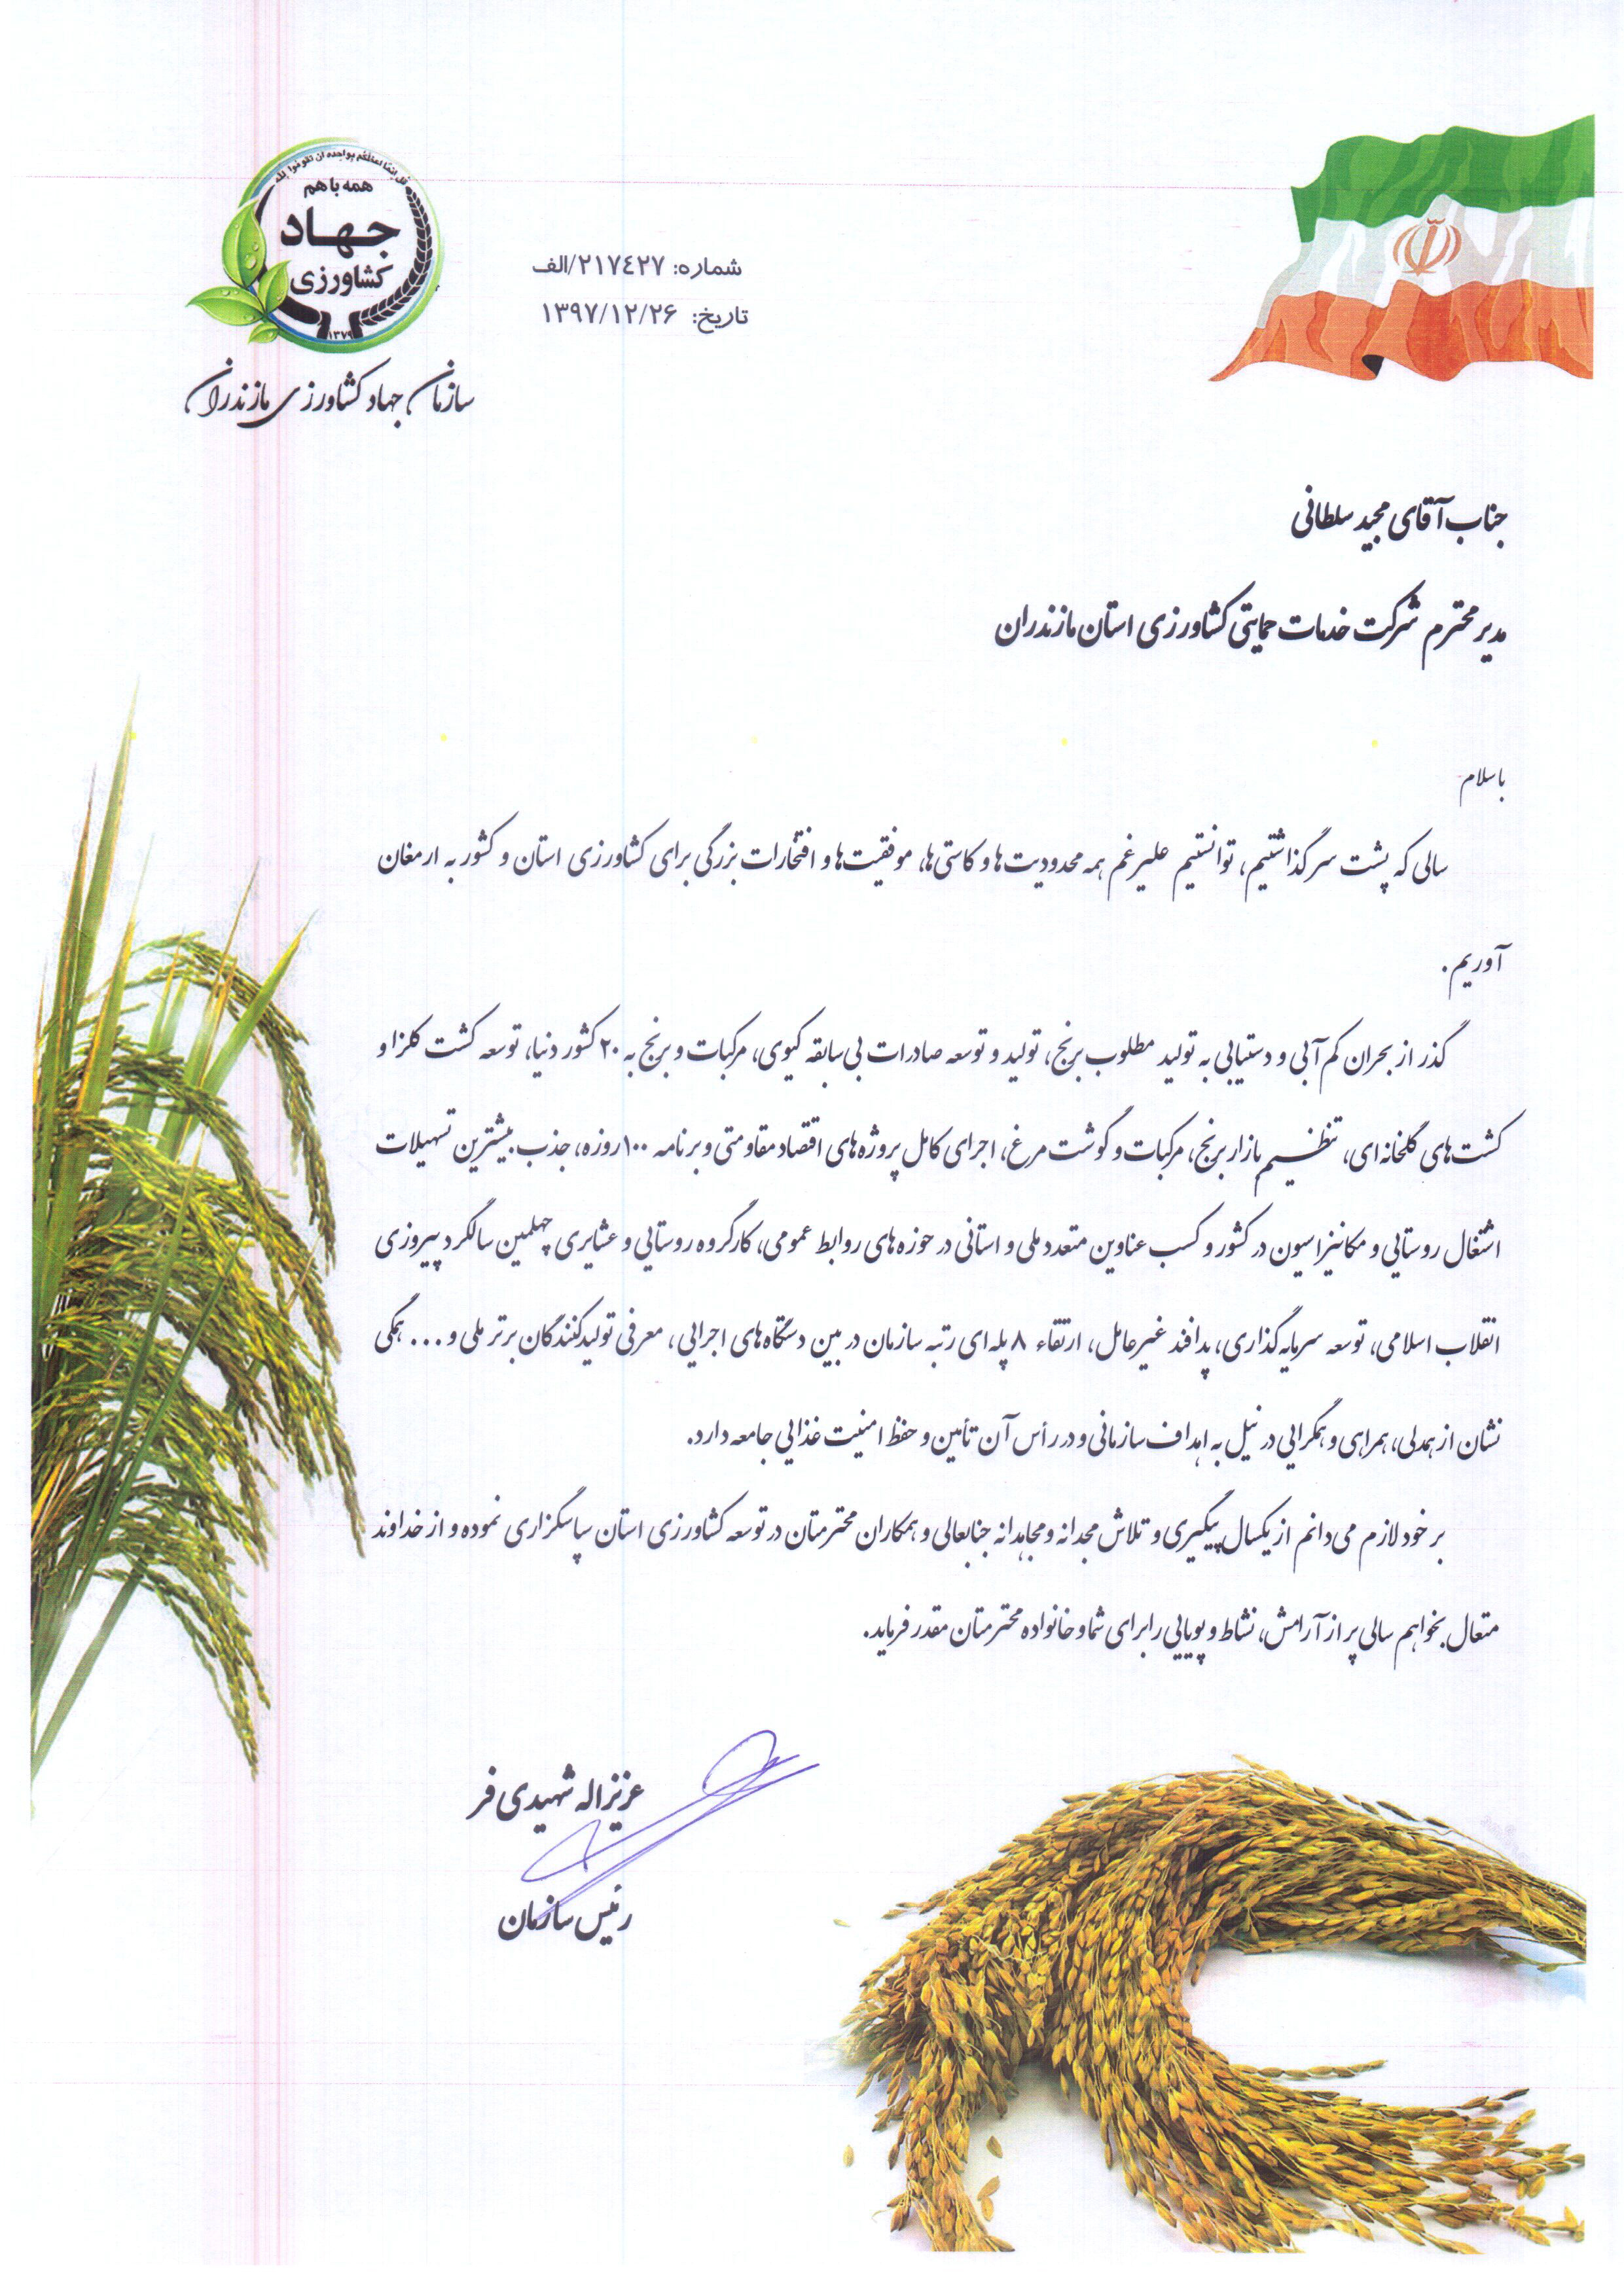 قل إنما أعظكم بواحدة أن تقوموا لله
همه با هم
جهاد
کشاورزی
۱۳۷۹
سازمان جهاد کشاورزی مازندران
شماره: ۲۱۷٤۲۷/الف
تاریخ: ۱۳۹۷/۱۲/۲۶
جناب آقای مجید سلطانی
مدیر محترم شرکت خدمات حمایتی کشاورزی استان مازندران
با سلام
سالی که پشت سر گذاشتیم، توانستیم علیرغم همه محدودیت‌ها و کاستی‌ها، موفقیت‌ها و افتخارات بزرگی برای کشاورزی استان و کشور به ارمغان
آوریم.
گذر از بحران کم آبی و دستیابی به تولید مطلوب برنج، تولید و توسعه صادرات بی سابقه کیوی، مرکبات و برنج به ۲۰ کشور دنیا، توسعه کشت کلزا و
کشت‌های گلخانه‌ای، تنظیم بازار برنج، مرکبات و گوشت مرغ، اجرای کامل پروژه‌های اقتصاد مقاومتی و برنامه ۱۰۰ روزه، جذب بیشترین تسهیلات
اشتغال روستایی و مکانیزاسیون در کشور و کسب عناوین متعدد ملی و استانی در حوزه‌های روابط عمومی، کارگروه روستایی و عشایری چهلمین سالگرد پیروزی
انقلاب اسلامی، توسعه سرمایه گذاری، پدافند غیرعامل، ارتقاء ۸ پله‌ای رتبه سازمان در بین دستگاه‌های اجرایی، معرفی تولیدکنندگان برتر ملی و ... همگی
نشان از همدلی، همراهی و همگرایی در نیل به اهداف سازمانی و در رأس آن تأمین و حفظ امنیت غذایی جامعه دارد.
بر خود لازم می‌دانم از یکسال پیگیری و تلاش مجدانه و مجاهدانه جنابعالی و همکاران محترمتان در توسعه کشاورزی استان سپاسگزاری نموده و از خداوند
متعال بخواهم سالی پر از آرامش، نشاط و پویایی را برای شما و خانواده محترمتان مقدر فرماید.
عزیزاله شهیدی فر
رئیس سازمان